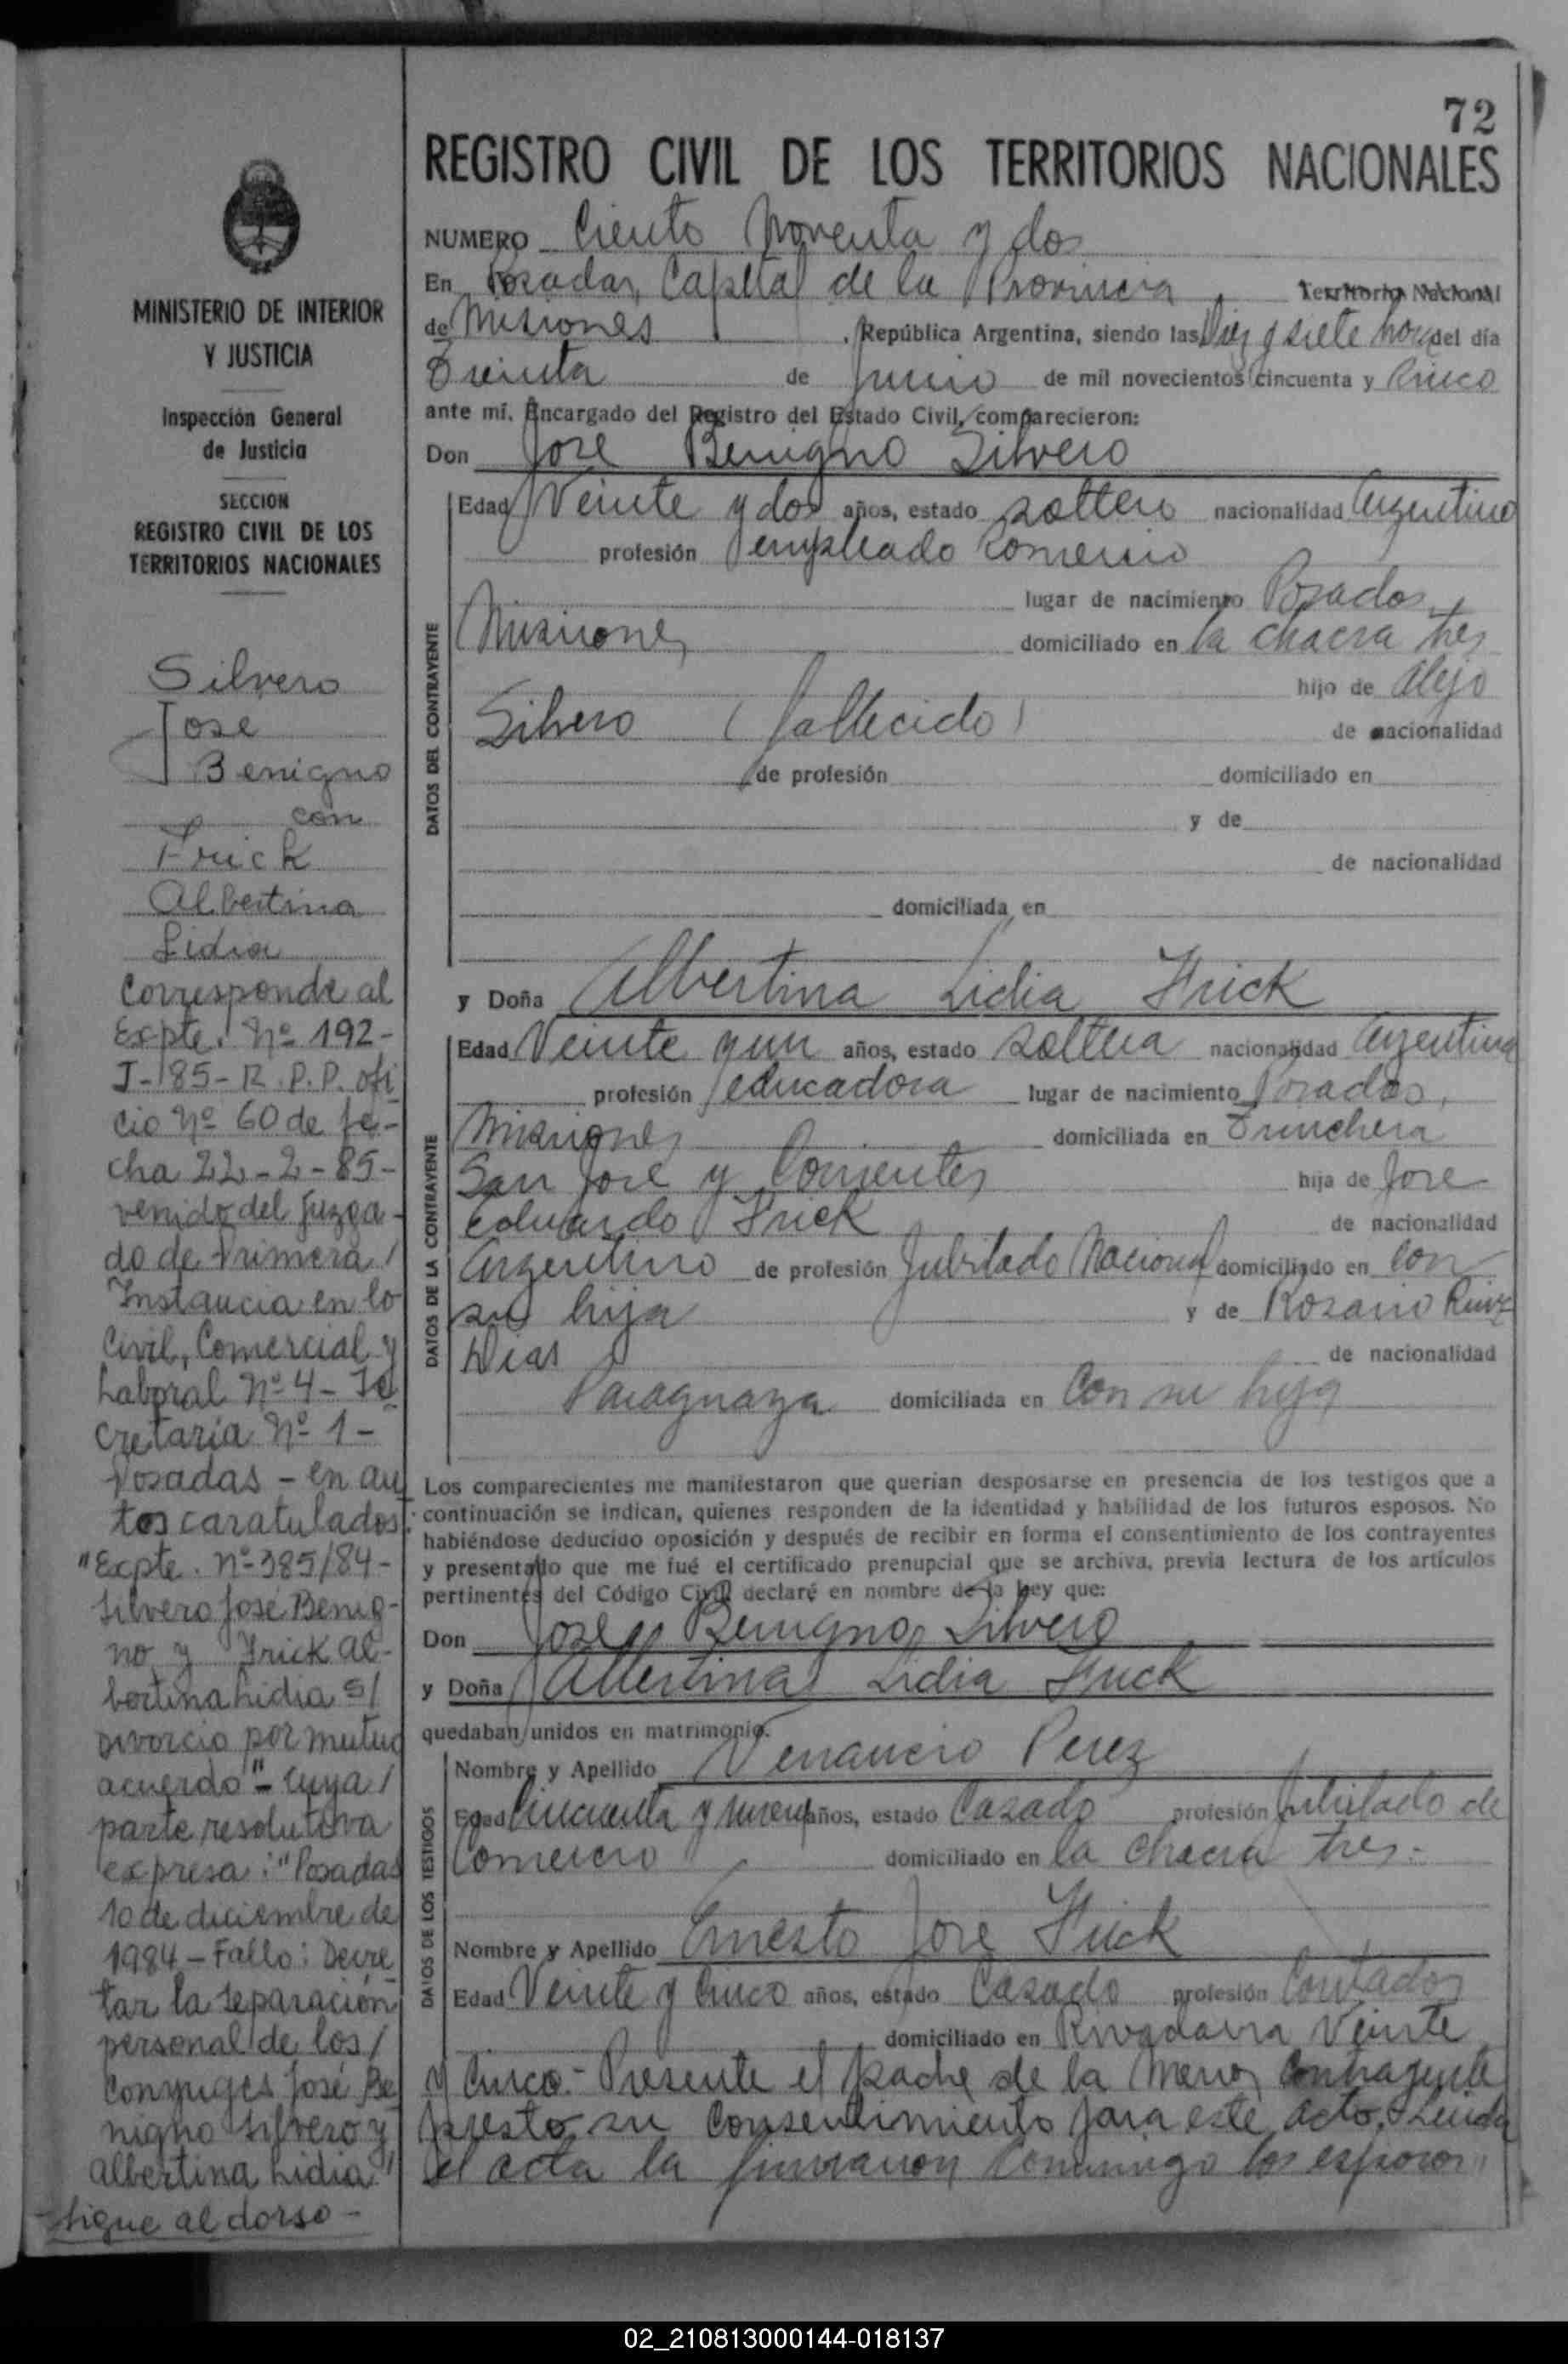 72
REGISTRO CIVIL DE LOS TERRITORIOS NACIONALES
NUMERO Ciento Noventa y dos
En Posadas, Capital de la Provincia Territorio Nacional
de Misiones , República Argentina, siendo las Diez y siete horas del día
Treinta de Junio de mil novecientos cincuenta y Cinco
ante mí, Encargado del Registro del Estado Civil, comparecieron:
Don Jose Benigno Silvero
DATOS DEL CONTRAYENTE
Edad Veinte y dos años, estado soltero nacionalidad Argentino
profesión empleado Comercio
lugar de nacimiento Posadas,
Misiones domiciliado en la chacra tres
hijo de Alejo
Silvero (fallecido) de nacionalidad
de profesión domiciliado en
y de
de nacionalidad
domiciliada en
y Doña Albertina Lidia Frick
DATOS DE LA CONTRAYENTE
Edad Veinte y un años, estado soltera nacionalidad Argentina
profesión educadora lugar de nacimiento Posadas,
Misiones domiciliada en Trinchera
San Jose y Corrientes hija de Jose
Eduardo Frick de nacionalidad
Argentino de profesión Jubilado Nacional domiciliado en con
su hija y de Rosario Ruiz
Dias de nacionalidad
Paraguaya domiciliada en Con su hija
Los comparecientes me manifestaron que querían desposarse en presencia de los testigos que a
continuación se indican, quienes responden de la identidad y habilidad de los futuros esposos. No
habiéndose deducido oposición y después de recibir en forma el consentimiento de los contrayentes
y presentado que me fué el certificado prenupcial que se archiva, previa lectura de los artículos
pertinentes del Código Civil declaré en nombre de la Ley que:
Don Jose Benigno Silvero
y Doña Albertina Lidia Frick
quedaban unidos en matrimonio.
DATOS DE LOS TESTIGOS
Nombre y Apellido Venancio Perez
Edad Cincuenta y nueve años, estado Casado profesión Jubilado de
Comercio domiciliado en la chacra tres.-
Nombre y Apellido Ernesto Jose Frick
Edad Veinte y Cinco años, estado Casado profesión Contador
domiciliado en Rivadavia Veinte
y Cinco.- Presente el padre de la Menor Contrayente
presto su Consentimiento para este acto. Leida
el acta la firmaron Conmigo los esposos
MINISTERIO DE INTERIOR
Y JUSTICIA
Inspección General
de Justicia
SECCION
REGISTRO CIVIL DE LOS
TERRITORIOS NACIONALES
Silvero
Jose
Benigno
con
Frick
Albertina
Lidia
Corresponde al
Expte. Nº 192-
J-85-R.P.P. ofi
cio Nº 60 de fe-
cha 22-2-85-
venido del Juzga-
do de Primera/
Instancia en lo
Civil, Comercial y
Laboral Nº 4- Se
cretaria Nº 1-
Posadas - en au
tos caratulados:
"Expte. Nº 385/84-
Silvero José Benig-
no y Frick Al-
bertina Lidia s/
Divorcio por mutuo
acuerdo"- Cuya/
parte resolutiva
expresa: "Posadas
10 de diciembre de
1984 - Fallo: Decre
tar la separación
personal de los/
Conyuges José Be
nigno Silvero y
Albertina Lidia/
-Sigue al dorso-
02_210813000144-018137